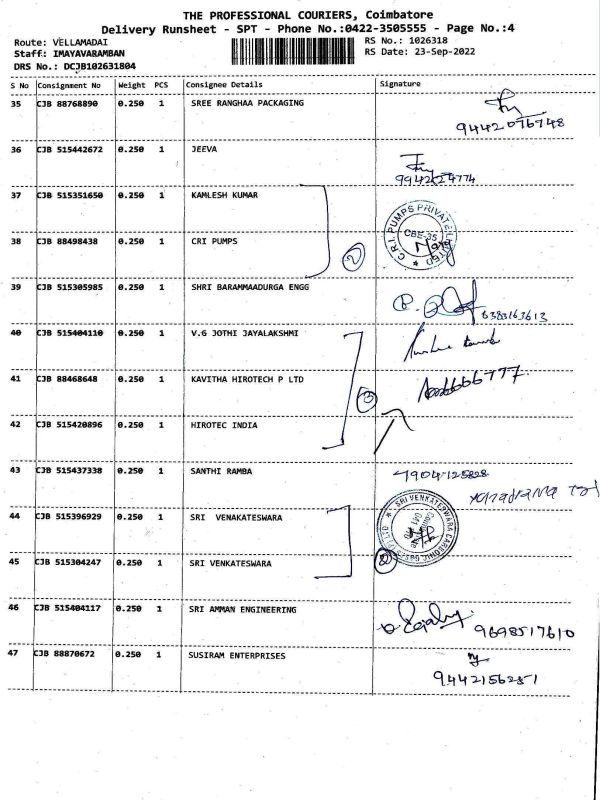 THE PROFESSIONAL COURIERS, Coimbatore
Delivery Runsheet - SPT - Phone No.:0422-3505555 - Page No.:4
Route: VELLAMADAI RS No.: 1026318
Staff: IMAYAVARAMBAN RS Date: 23-Sep-2022
DRS No.: DCJB102631804
S No Consignment No Weight PCS Consignee Details Signature
35 CJB 88768890 0.250 1 SREE RANGHAA PACKAGING
9442076748
36 CJB 515442672 0.250 1 JEEVA
9942424774
37 CJB 515351650 0.250 1 KAMLESH KUMAR
C.R.I. PUMPS PRIVATE LIMITED
CBE-35
38 CJB 88498438 0.250 1 CRI PUMPS
2
39 CJB 515305985 0.250 1 SHRI BARAMMAADURGA ENGG
6383163613
40 CJB 515404110 0.250 1 V.G JOTHI JAYALAKSHMI
41 CJB 88468648 0.250 1 KAVITHA HIROTECH P LTD
3
42 CJB 515420896 0.250 1 HIROTEC INDIA
43 CJB 515437338 0.250 1 SANTHI RAMBA
44 CJB 515396929 0.250 1 SRI VENAKATESWARA
SRI VENKATESWARA
45 CJB 515304247 0.250 1 SRI VENKATESWARA
2
46 CJB 515404117 0.250 1 SRI AMMAN ENGINEERING
9698517610
47 CJB 88870672 0.250 1 SUSIRAM ENTERPRISES